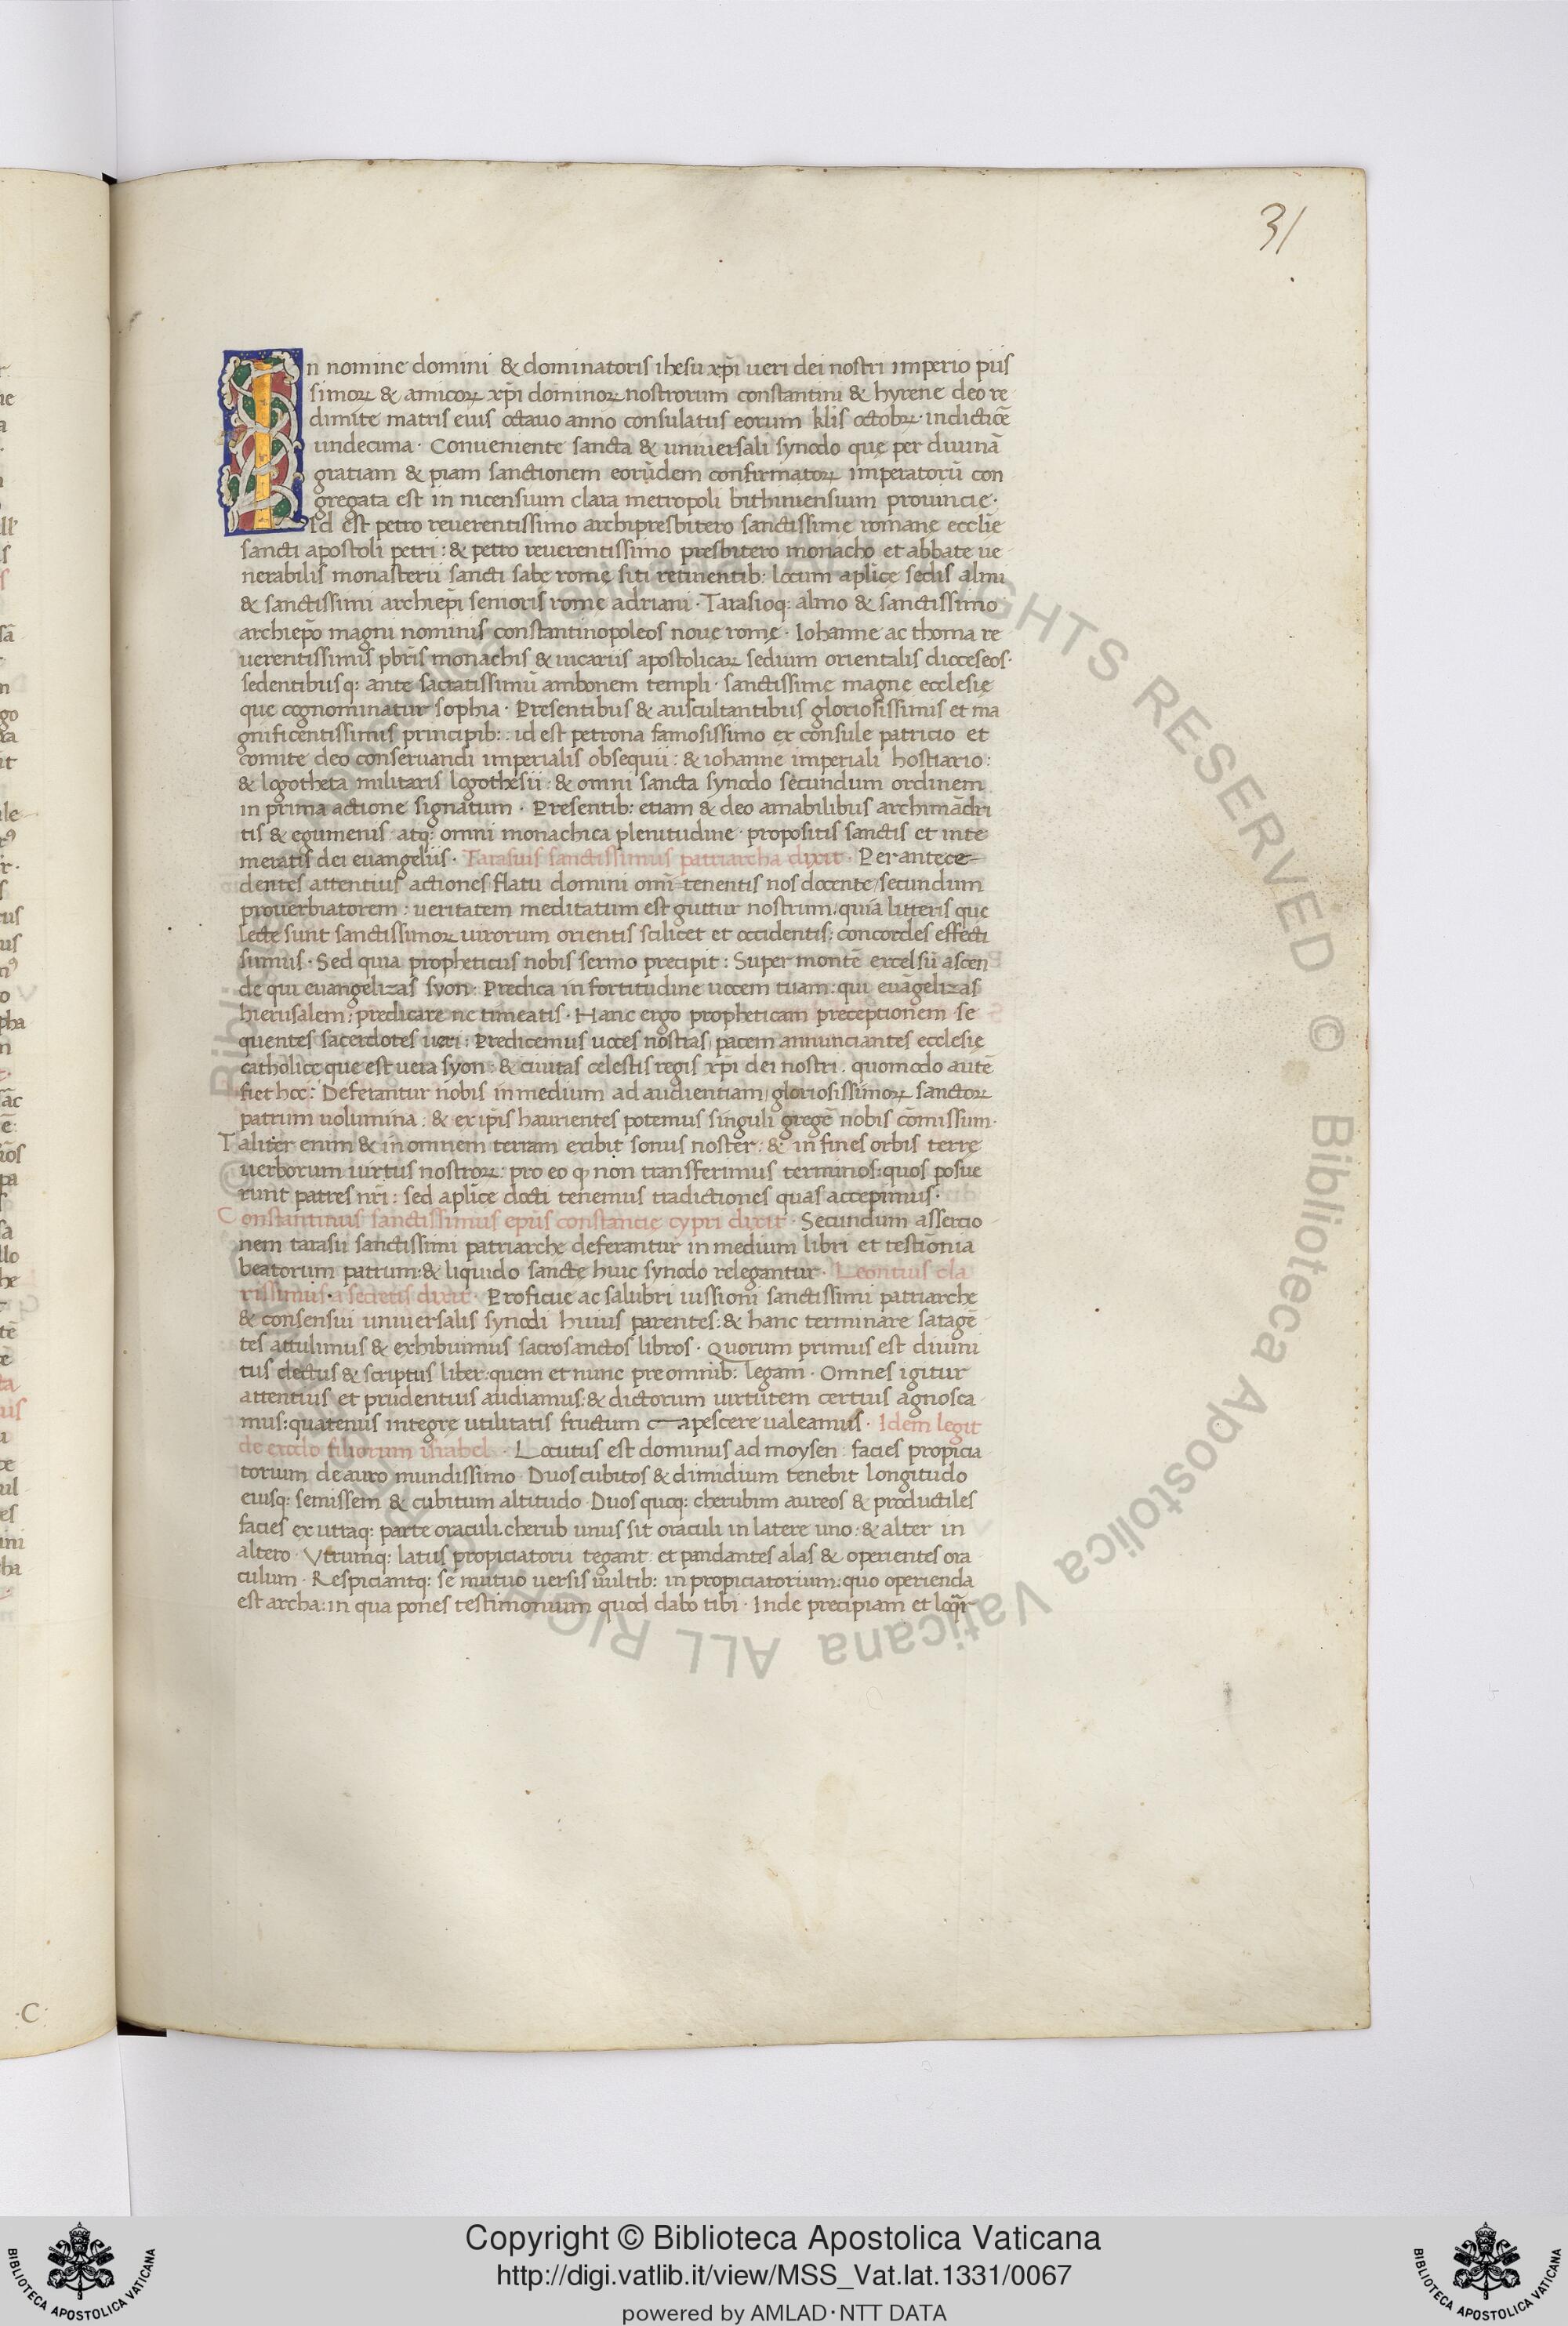 31
In nomine domini & dominatoris ihesu xp̄i ueri dei nostri imperio piis
simoꝝ & amicoꝝ xp̄i dominoꝝ nostrorum constantini & hyrene deo re
dimite matris eius octauo anno consulatus eorum kl̄is octobꝝ · indictiōe
undecima · Conueniente sancta & uniuersali synodo que per diuinā
gratiam & piam sanctionem eorūdem confirmatoꝝ imperatorū con
gregata est in nicensium clara metropoli bithiniensium prouincie ·
id est petro reuerentissimo archipresbitero sanctissime romane eccl̄ie
sancti apostoli petri : & petro reuerentissimo presbitero monacho et abbate ue
nerabilis monasterii sancti sabe romę siti retinentib: locum apl̄ice sedis almi
& sanctissimi archiep̄i senioris rome adriani · Tarasioq: almo & sanctissimo
archiep̄o magni nominis constantinopoleos noue romę · Iohanne ac thoma re
uerentissimis pb̄ris monachis & uicariis apostolicaꝝ sedium orientalis dioceseos ·
sedentibusq: ante sacratissimū ambonem templi · sanctissime magne ecclesię
que cognominatur sophia · Presentibus & auscultantibus gloriosissimis et ma
gnificentissimis principib: : id est petrona famosissimo ex consule patricio et
comite deo conseruandi imperialis obsequii : & iohanne imperiali hostiario :
& logotheta militaris logothesii : & omni sancta synodo secundum ordinem
in prima actione signatum · Presentib: etiam & deo amabilibus archimādri
tis & egumenis atq: omni monachica plenitudine · propositis sanctis et inte
meratis dei euangeliis · Tarasius sanctissimus patriarcha dixit · Per antece
dentes attentius actiones flatu domini omī=tenentis nos docente / secundum
prouerbiatorem : ueritatem meditatum est guttur nostrum . quia litteris que
lecte sunt sanctissimoꝝ uirorum orientis scilicet et occidentis : concordes effecti
sumus · Sed quia propheticus nobis sermo precipit : Super montē excelsū ascen
de qui euangelizas syon : Predica in fortitudine uocem tuam : qui euāgelizas
hierusalem : predicare ne timeatis · Hanc ergo propheticam preceptionem se
quentes sacerdotes ueri : Predicemus uoces nostras / pacem annunciantes ecclesię
catholice que est uera syon : & ciuitas celestis regis xp̄i dei nostri . quomodo autē
fiet hoc : Deferantur nobis in medium ad audientiam / gloriosissimoꝝ sanctoꝝ
patrum uolumina : & ex ip̄is haurientes potemus singuli gregē nobis cōmissum ·
Taliter enim & in omnem terram exibit sonus noster : & in fines orbis terre
uerborum uirtus nostroꝝ : pro eo ꝙ non transferimus terminos : quos posue
runt patres nr̄i : sed apl̄ice docti tenemus traditiones quas accepimus ·
Constantinus sanctissimus ep̄us constancie cypri dixit · Secundum assercio
nem tarasii sanctissimi patriarche deferantur in medium libri et testiōnia
beatorum patrum : & liquido sancte huic synodo relegantur · Leontius cla
rissimus · a secretis dixit · Proficue ac salubri iussioni sanctissimi patriarche
& consensui uniuersalis synodi huius parentes : & hanc terminare satagē
tes attulimus & exhibuimus sacrosanctos libros · Quorum primus est diuini
tus electus & scriptus liber : quem et nunc pre omnib: legam · Omnes igitur
attentius et prudentius audiamus : & dictorum uirtutem certius agnosca
mus : quatenus integre utilitatis fructum c—apescere ualeamus · Idem legit
de exodo filiorum israhel · Locutus est dominus ad moysen : facies propicia
torium de auro mundissimo · Duos cubitos & dimidium tenebit longitudo
eiusq: semissem & cubitum altitudo · Duos quoq: cherubim aureos & productiles
facies ex utraq: parte oraculi . cherub unus sit oraculi in latere uno : & alter in
altero · Vtrumq: latus propiciatorii tegant et pandantes alas & operientes ora
culum · Respiciantq: se mutuo uersis uultib: in propiciatorium : quo operienda
est archa : in qua pones testimonium quod dabo tibi · Inde precipiam et loq̄r
·C·
© Biblioteca Apostolica Vaticana ALL RIGHTS RESERVED
Copyright © Biblioteca Apostolica Vaticana
http://digi.vatlib.it/view/MSS_Vat.lat.1331/0067
powered by AMLAD·NTT DATA
BIBLIOTECA APOSTOLICA VATICANA
BIBLIOTECA APOSTOLICA VATICANA